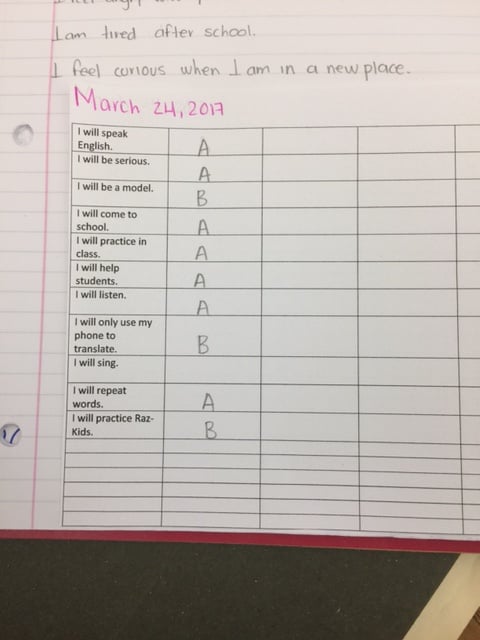 I am tired after school.
I feel curious when I am in a new place.
March 24, 2017
I will speak
English.
A
I will be serious.
A
I will be a model.
B
I will come to
school.
A
I will practice in
class.
A
I will help
students.
A
I will listen.
A
I will only use my
phone to
translate.
B
I will sing.
I will repeat
words.
A
I will practice Raz-
Kids.
B